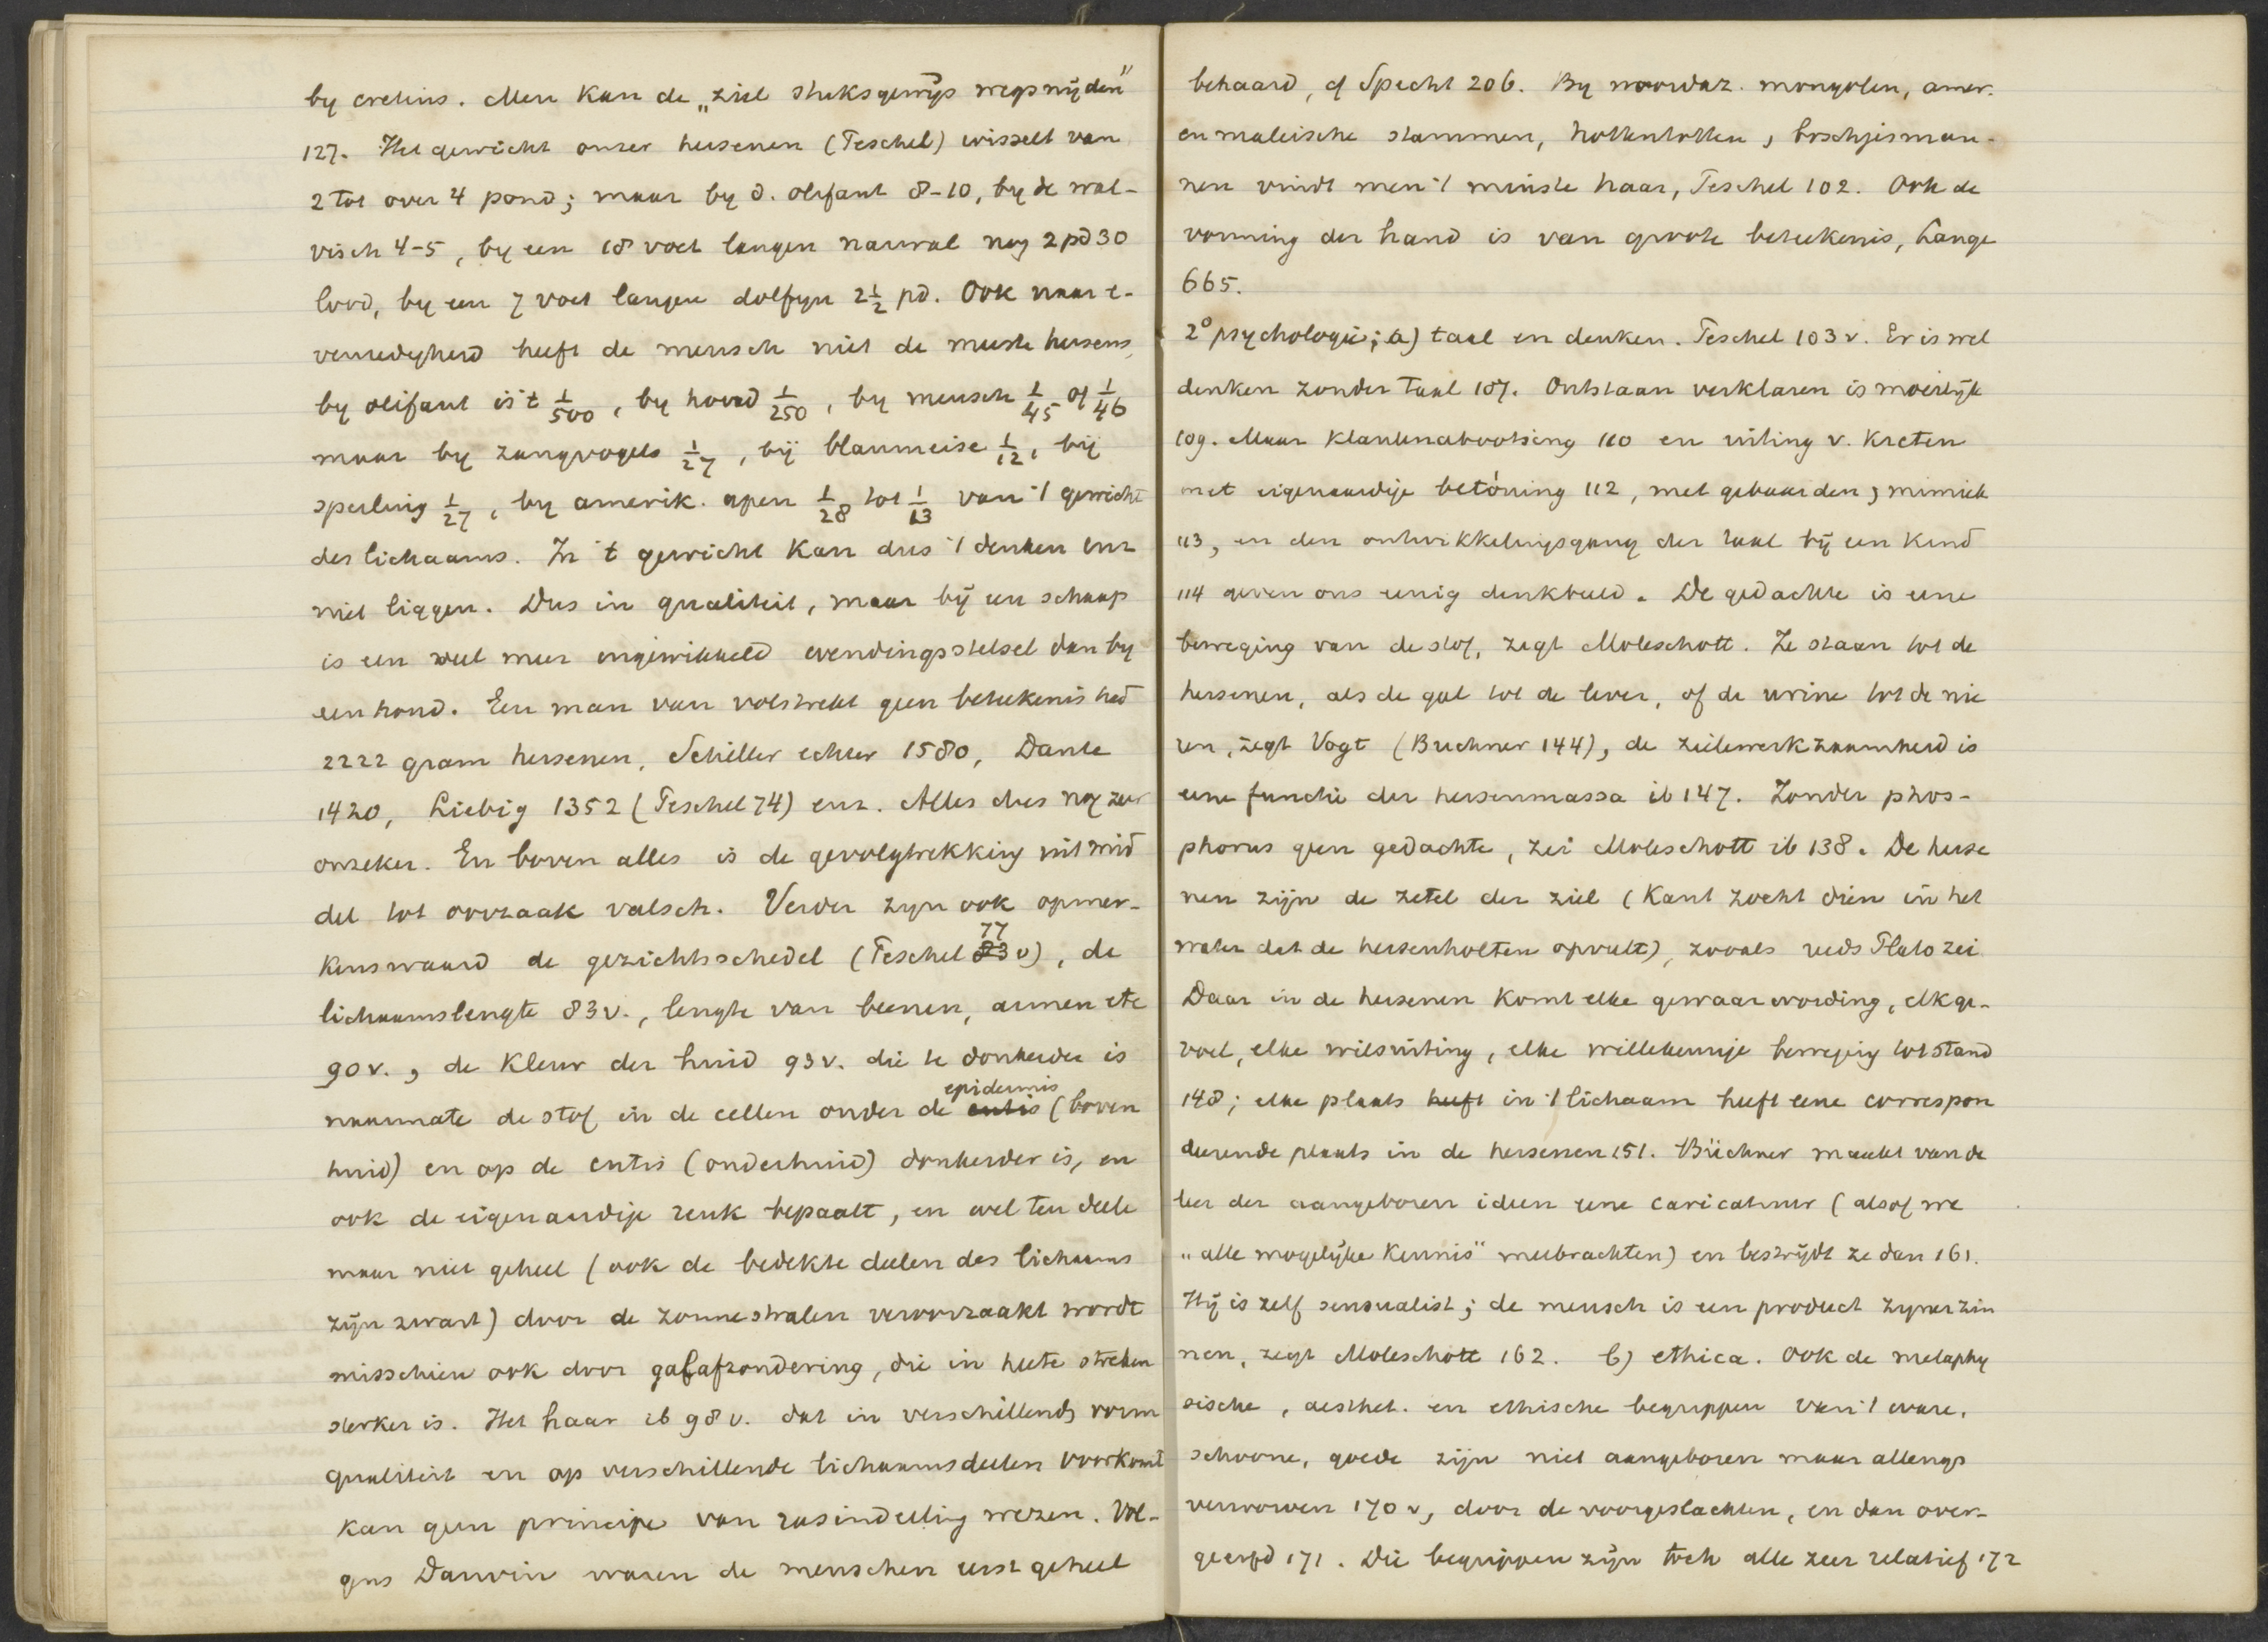 by cretins. Men kan de „ziel stuksgewijs wegsnijden"
127. Het gewicht onzer hersenen (Peschel) wisselt van
2 tot over 4 pond; maar by d. olifant 8-10, by de wal-
visch 4-5, by een 18 voet langen narwal nog 2 pd 30
lood, by een 7 voet langen dolfyn 2 1/2 pd. Ook naar e-
venredigheid heeft de mensch niet de meeste hersens,
by olifant is 't 1/500, by hond 1/250, by mensch 1/45 of 1/46
maar by zangvogels 1/27, bij blaumeise 1/12, bij
sperling 1/27, by amerik. apen 1/28 tot 1/13 van 't gewicht
des lichaams. In 't gewicht kan dus 't denken enz
niet liggen. Dus in qualiteit, maar bij een schaap
is een veel meer ingewikkeld windingsstelsel dan by
een hond. Een man van volstrekt geen beteekenis had
2222 gram hersenen, Schiller echter 1580, Dante
1420, Liebig 1352 (Peschel 74) enz. Alles dus nog zeer
onzeker. En boven alles is de gevolgtrekking uit mid
del tot oorzaak valsch. Verder zyn ook opmer-
kenswaard de gezichtsschedel (Peschel 83 77 v), de
lichaamslengte 83 v., lengte van beenen, armen etc
90 v., de kleur der huid 93 v. die te donkerder is
naarmate de stof in de cellen onder de cutis epidermis (boven
huid) en op de cutis (onderhuid) donkerder is, en
ook de eigenaardige reuk bepaalt, en wel ten deele
maar niet geheel (ook de bedekte deelen des lichaams
zijn zwart) door de zonnestralen veroorzaakt wordt
misschien ook door galafzondering, die in heete streken
sterker is. Het haar ib 98 v. dat in verschillende vorm
qualiteit en op verschillende lichaamsdeelen voorkomt
kan geen principe van rasindeeling wezen. Vol-
gens Darwin waren de menschen eerst geheel
behaard, cf Specht 206. By noordaz. mongolen, amer.
en maleische stammen, hottentotten, boschjesman-
nen vindt men 't minste haar, Peschel 102. Ook de
vorming der hand is van groote beteekenis, Lange
665.
2° psychologie; a) taal en denken. Peschel 103 v. Er is wel
denken zonder taal 107. Ontstaan verklaren is moeilijk
109. Maar klanknabootsing 110 en uiting v. kreten
met eigenaardige betóning 112, met gebaarden, mimiek
113, en den ontwikkelingsgang der taal bij een kind
114 geven ons eenig denkbeeld. De gedachte is eene
beweging van de stof, zegt Moleschott. Ze staan tot de
hersenen, als de gal tot de lever, of de urine tot de nie
ren, zegt Vogt (Buchner 144), de zielewerkzaamheid is
eene functie der hersenmassa ib 147. Zonder phos-
phorus geen gedachte, zei Moleschott ib 138. De herse
nen zijn de zetel der ziel (Kant zocht dien in het
water dat de hersenholten opvult), zooals reeds Plato zei
Daar in de hersenen komt elke gewaarwording, elk ge-
voel, elke wilsuiting, elke willekeurige beweging tot stand
148; elke plaats heeft in 't lichaam heeft eene correspon
deerende plaats in de hersenen 151. Büchner maakt van de
leer der aangeboren ideen eene caricatuur (alsof we
„alle mogelijke kennis" meebrachten) en bestrijdt ze dan 161.
Hij is zelf sensualist; de mensch is een product zyner zin
nen, zegt Moleschott 162. b) ethica. Ook de metaphy
sische, aesthet. en ethische begrippen van 't ware,
schoone, goede zijn niet aangeboren maar allengs
verworven 170 v, door de voorgeslachten, en dan over-
geerfd 171. Die begrippen zijn toch alle zeer relatief 172